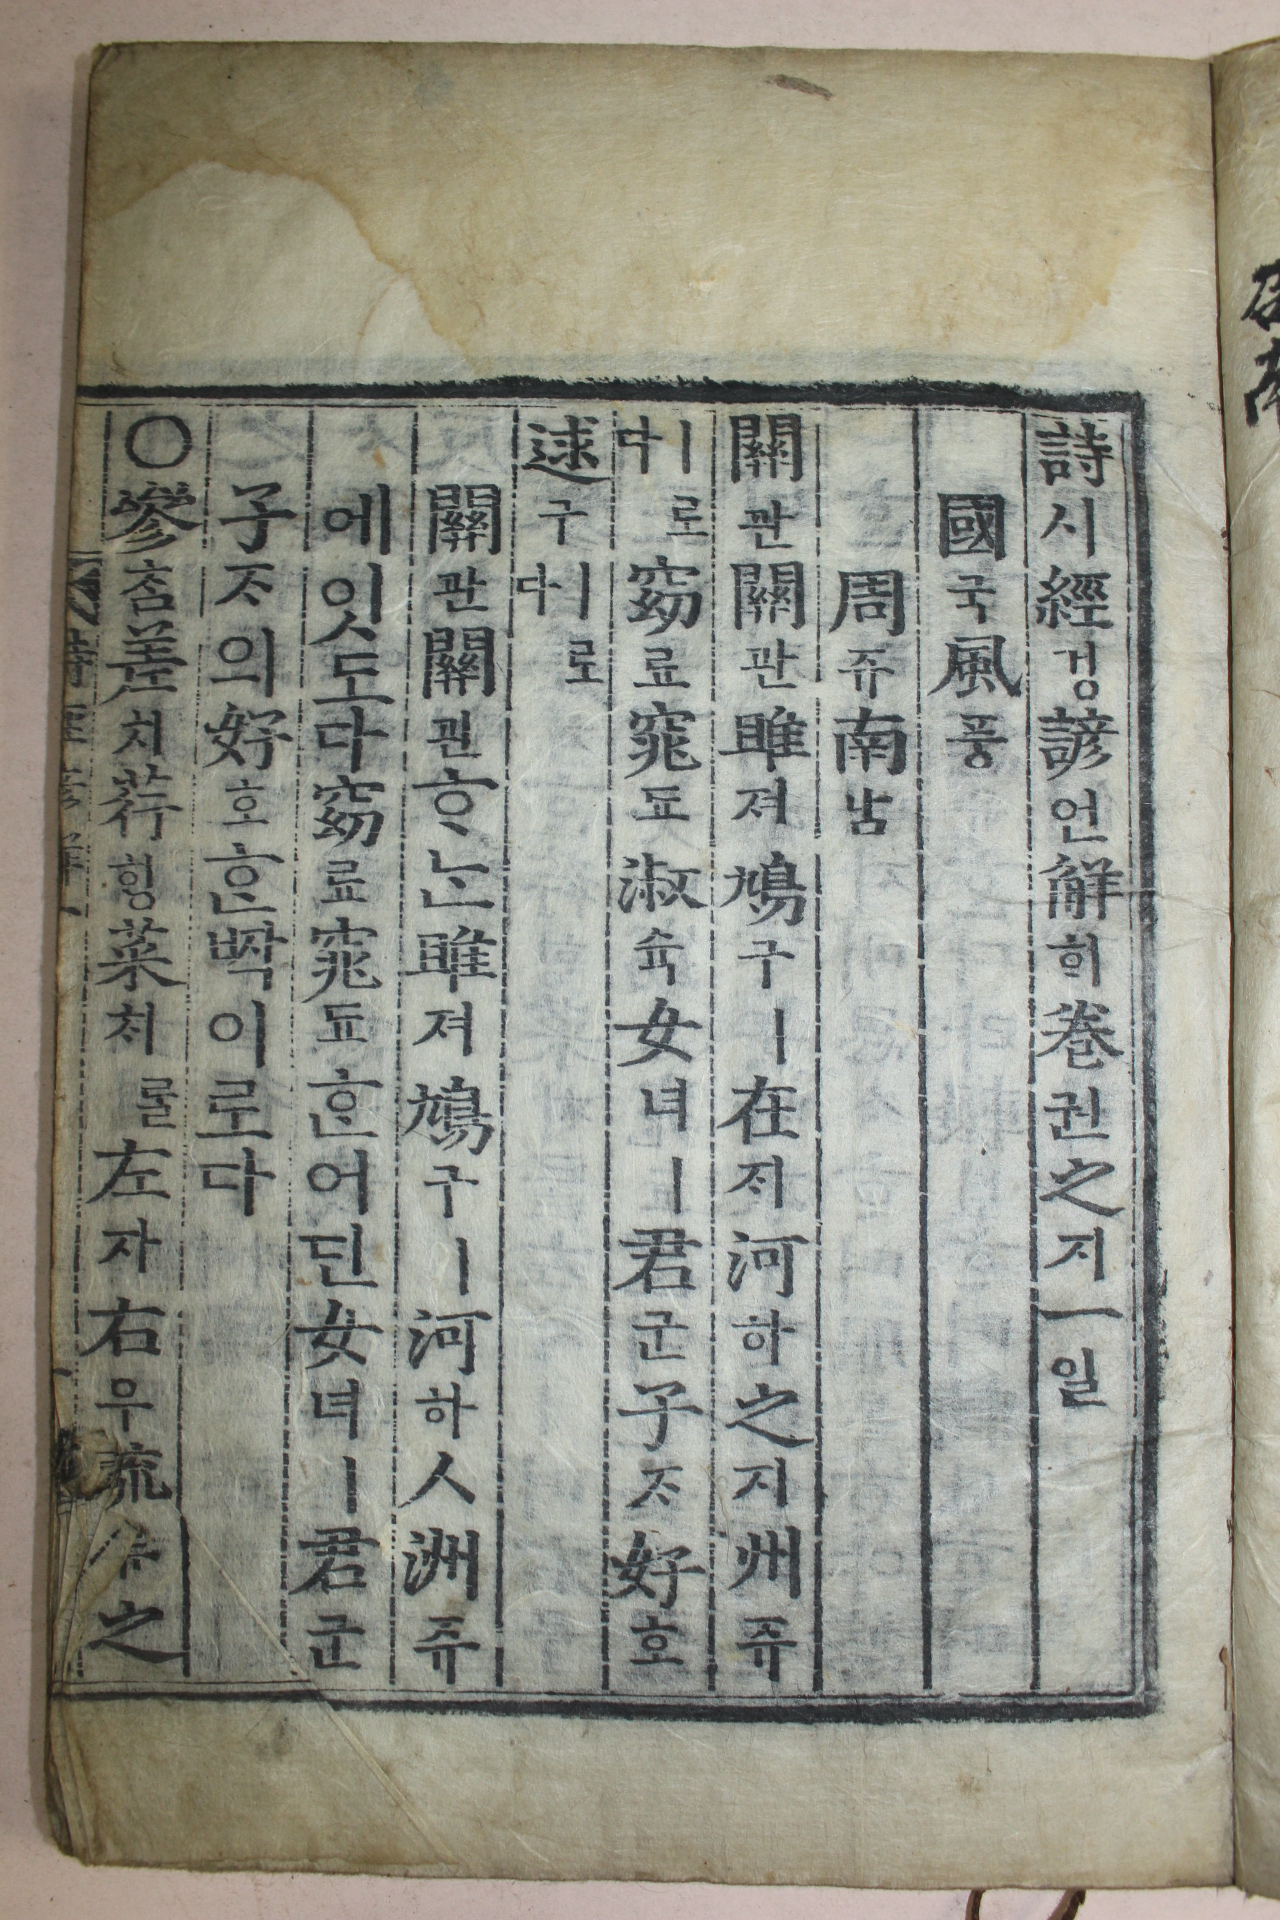 詩시經겅諺언解ᄒᆡ卷권之지一일
國국風풍
周쥬南남
關관關관雎져鳩구ㅣ在ᄌᆡ河하之지州쥬
ㅣ로다窈료窕됴淑슉女녀ㅣ君군子ᄌᆞ好호
逑구ㅣ로다
關관關관ᄒᆞᄂᆞᆫ雎져鳩구ㅣ河하人洲쥬
에잇도다窈료窕됴ᄒᆞᆫ어딘女녀ㅣ君군
子ᄌᆞ의好호ᄒᆞᆫᄧᅡᆨ이로다
〇參참差치荇ᄒᆡᆼ菜ᄎᆡ를左자右우流류之